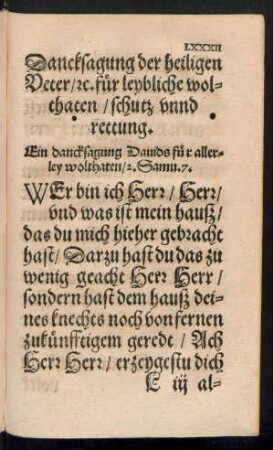 LXXXII
Dancksagung der heiligen
Veter/ꝛc. für leybliche wol-
thaten/schutz vnnd
rettung.
Ein dancksagung Dauids für aller-
ley wolthaten/2. Samu. 7.
WEr bin ich Herr/Herr/
vnd was ist mein hauß/
das du mich hieher gebracht
hast/Darzu hast du das zu
wenig geacht Herr Herr/
sondern hast dem hauß dei-
nes knechts noch von fernen
zukünfftigem geredt/Ach
Herr Herr/erzeygestu dich
L iij al-